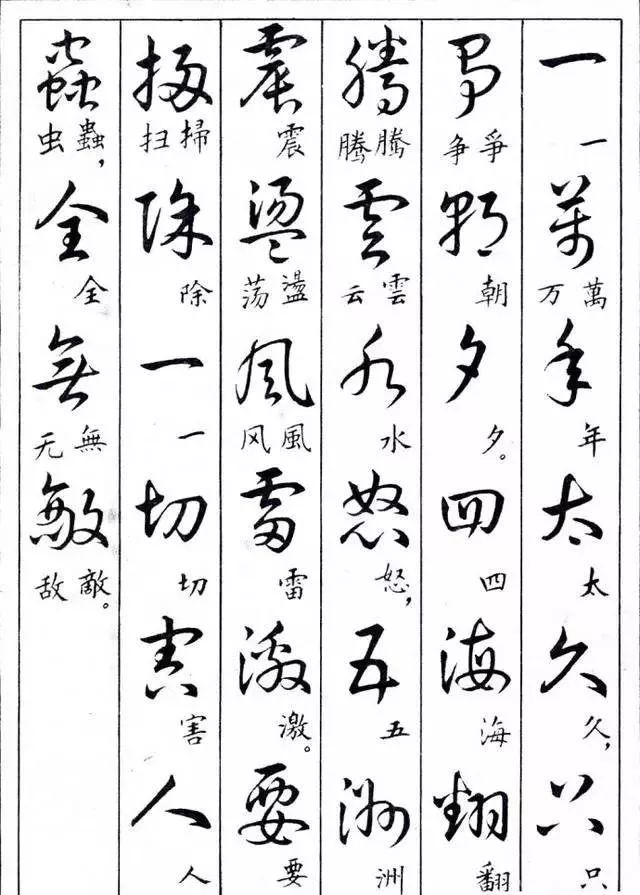 一萬年太久只
一 万萬 年 太 久， 只
爭朝夕四海翻
争爭 朝 夕。 四 海 翻
騰雲水怒五洲
腾騰 云雲 水 怒， 五 洲
震盪風雷激要
震 荡盪 风風 雷 激。 要
掃除一切害人
扫掃 除 一 切 害 人
蟲全無敵
虫蟲， 全 无無 敌敵。